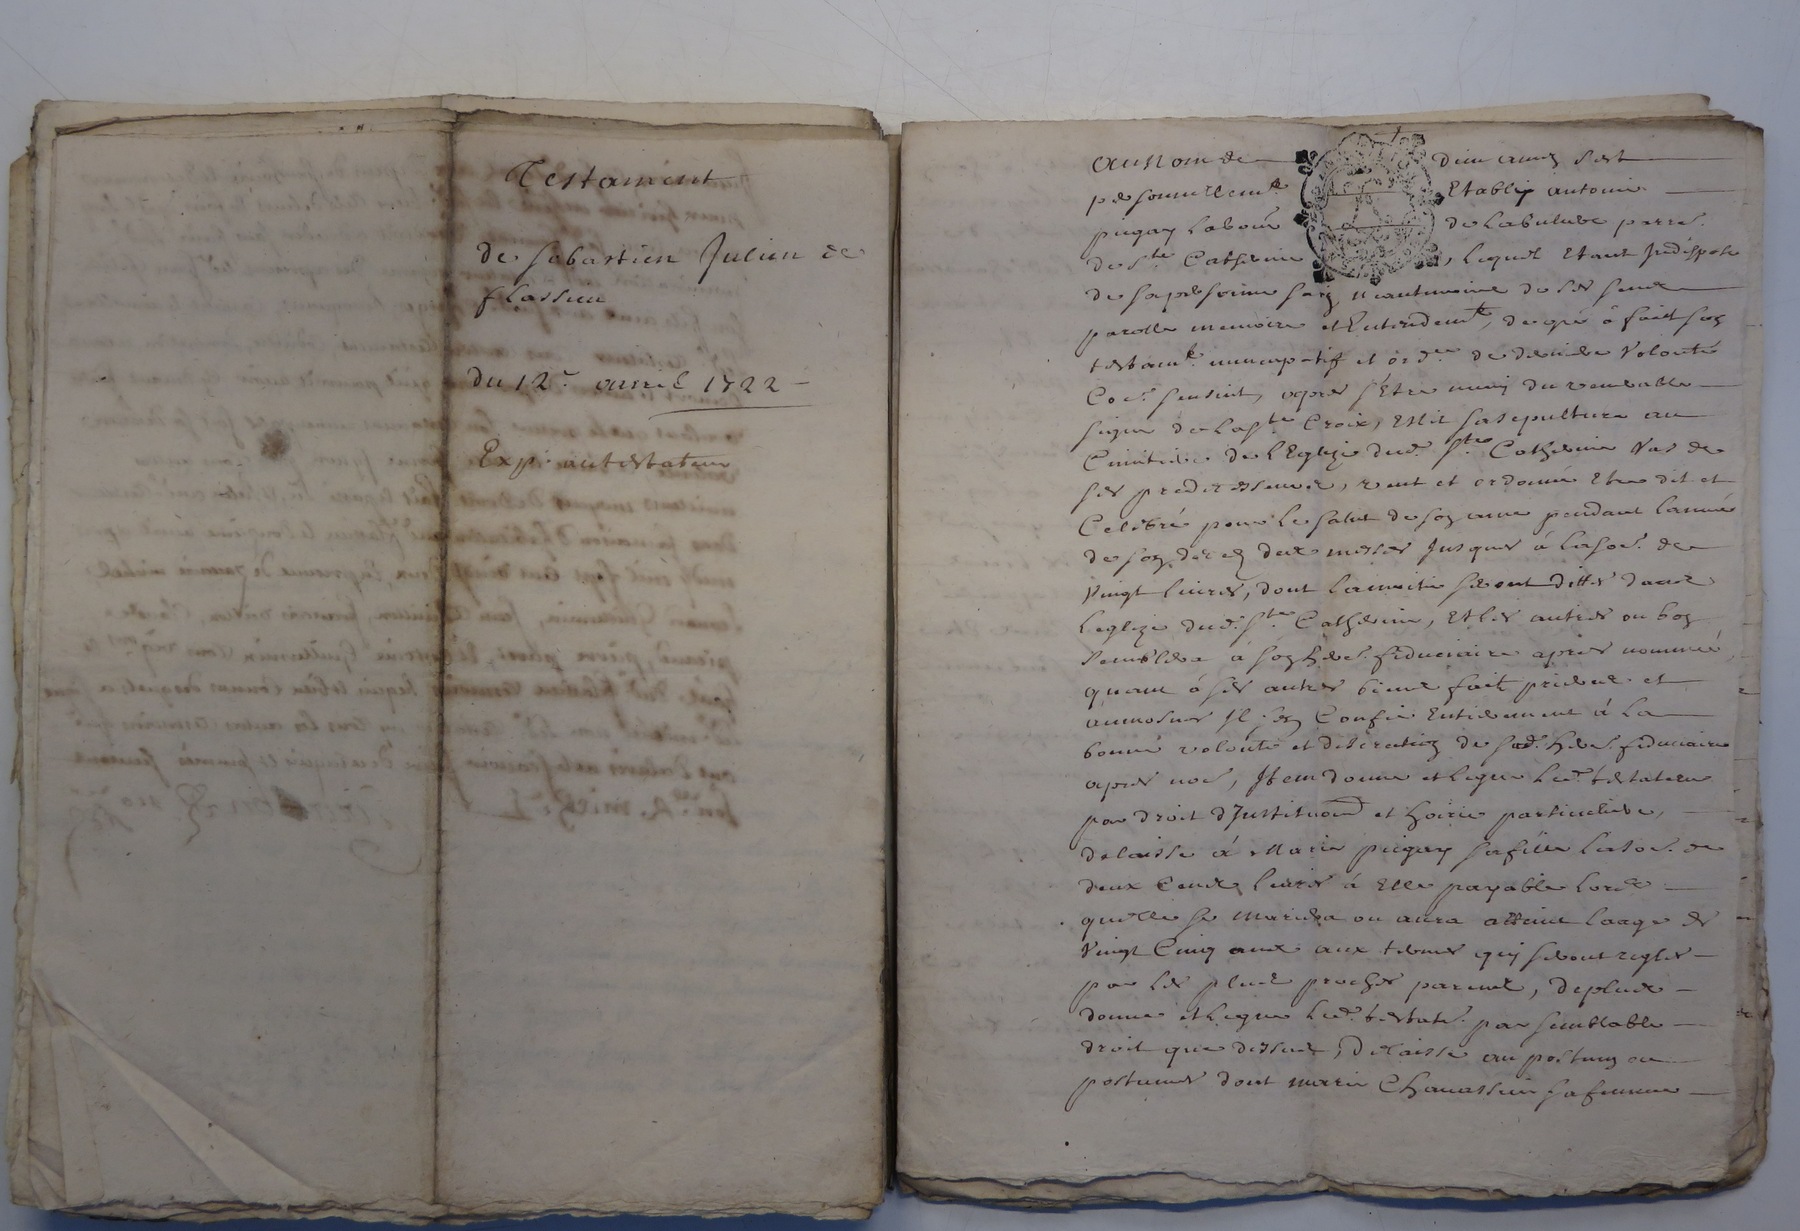 Testament
de Sebastien Julien de
flassieu
du 12e. avril 1722
Exp. au testateur
Au Nom de Dieu amen s'est
personnellemt Establi antoine
pugay Labour de Labuluere parre.
de Ste Catherine, lequel Etant Indisposé
de sa personne sain neantmoins de ses sens
parolle memoire et Entendemt, de gré a fait son
testamt nuncupatif et ordce de derniere volonté
Coe. sensuit, apres s'Etre muny du venerable
signe de la Ste Croix, Eslit sa sepulture au
Cimitiere de l'Eglize dud. Ste Catherine vas de
ses predecesseurs, veut et ordonne Etre dit et
Celebré pour le salut de son ame pendant l'année
de son decez des messes Jusques a la soe. de
vingt livres, dont la moitie seront dittes dans
leglize dud. Ste Catherine, Et les autres ou bon
semblera a son her. fiduciaire apres nommée,
quant a ses autres biens fait prieres et
aumosnes Il s'en Confie Entierement a la
bonne volonté et discretion de sad. her. fiduciaire
apres noe, Item donne et legue led. testateur
par droit d'Institution et hoirie particuliere,
delaisse a Marie pugay sa fille la soe. de
deux Cents livres a Elle payable lors
quelle se mariera ou aura atteint laage de
vingt Cinq ans aux termes quy seront reglés
par les plus proches parents, de plus
donne et legue led. testate. par semblable
droit que dessus, delaisse au postume ou
postumes dont marie Chavassieu sa femme